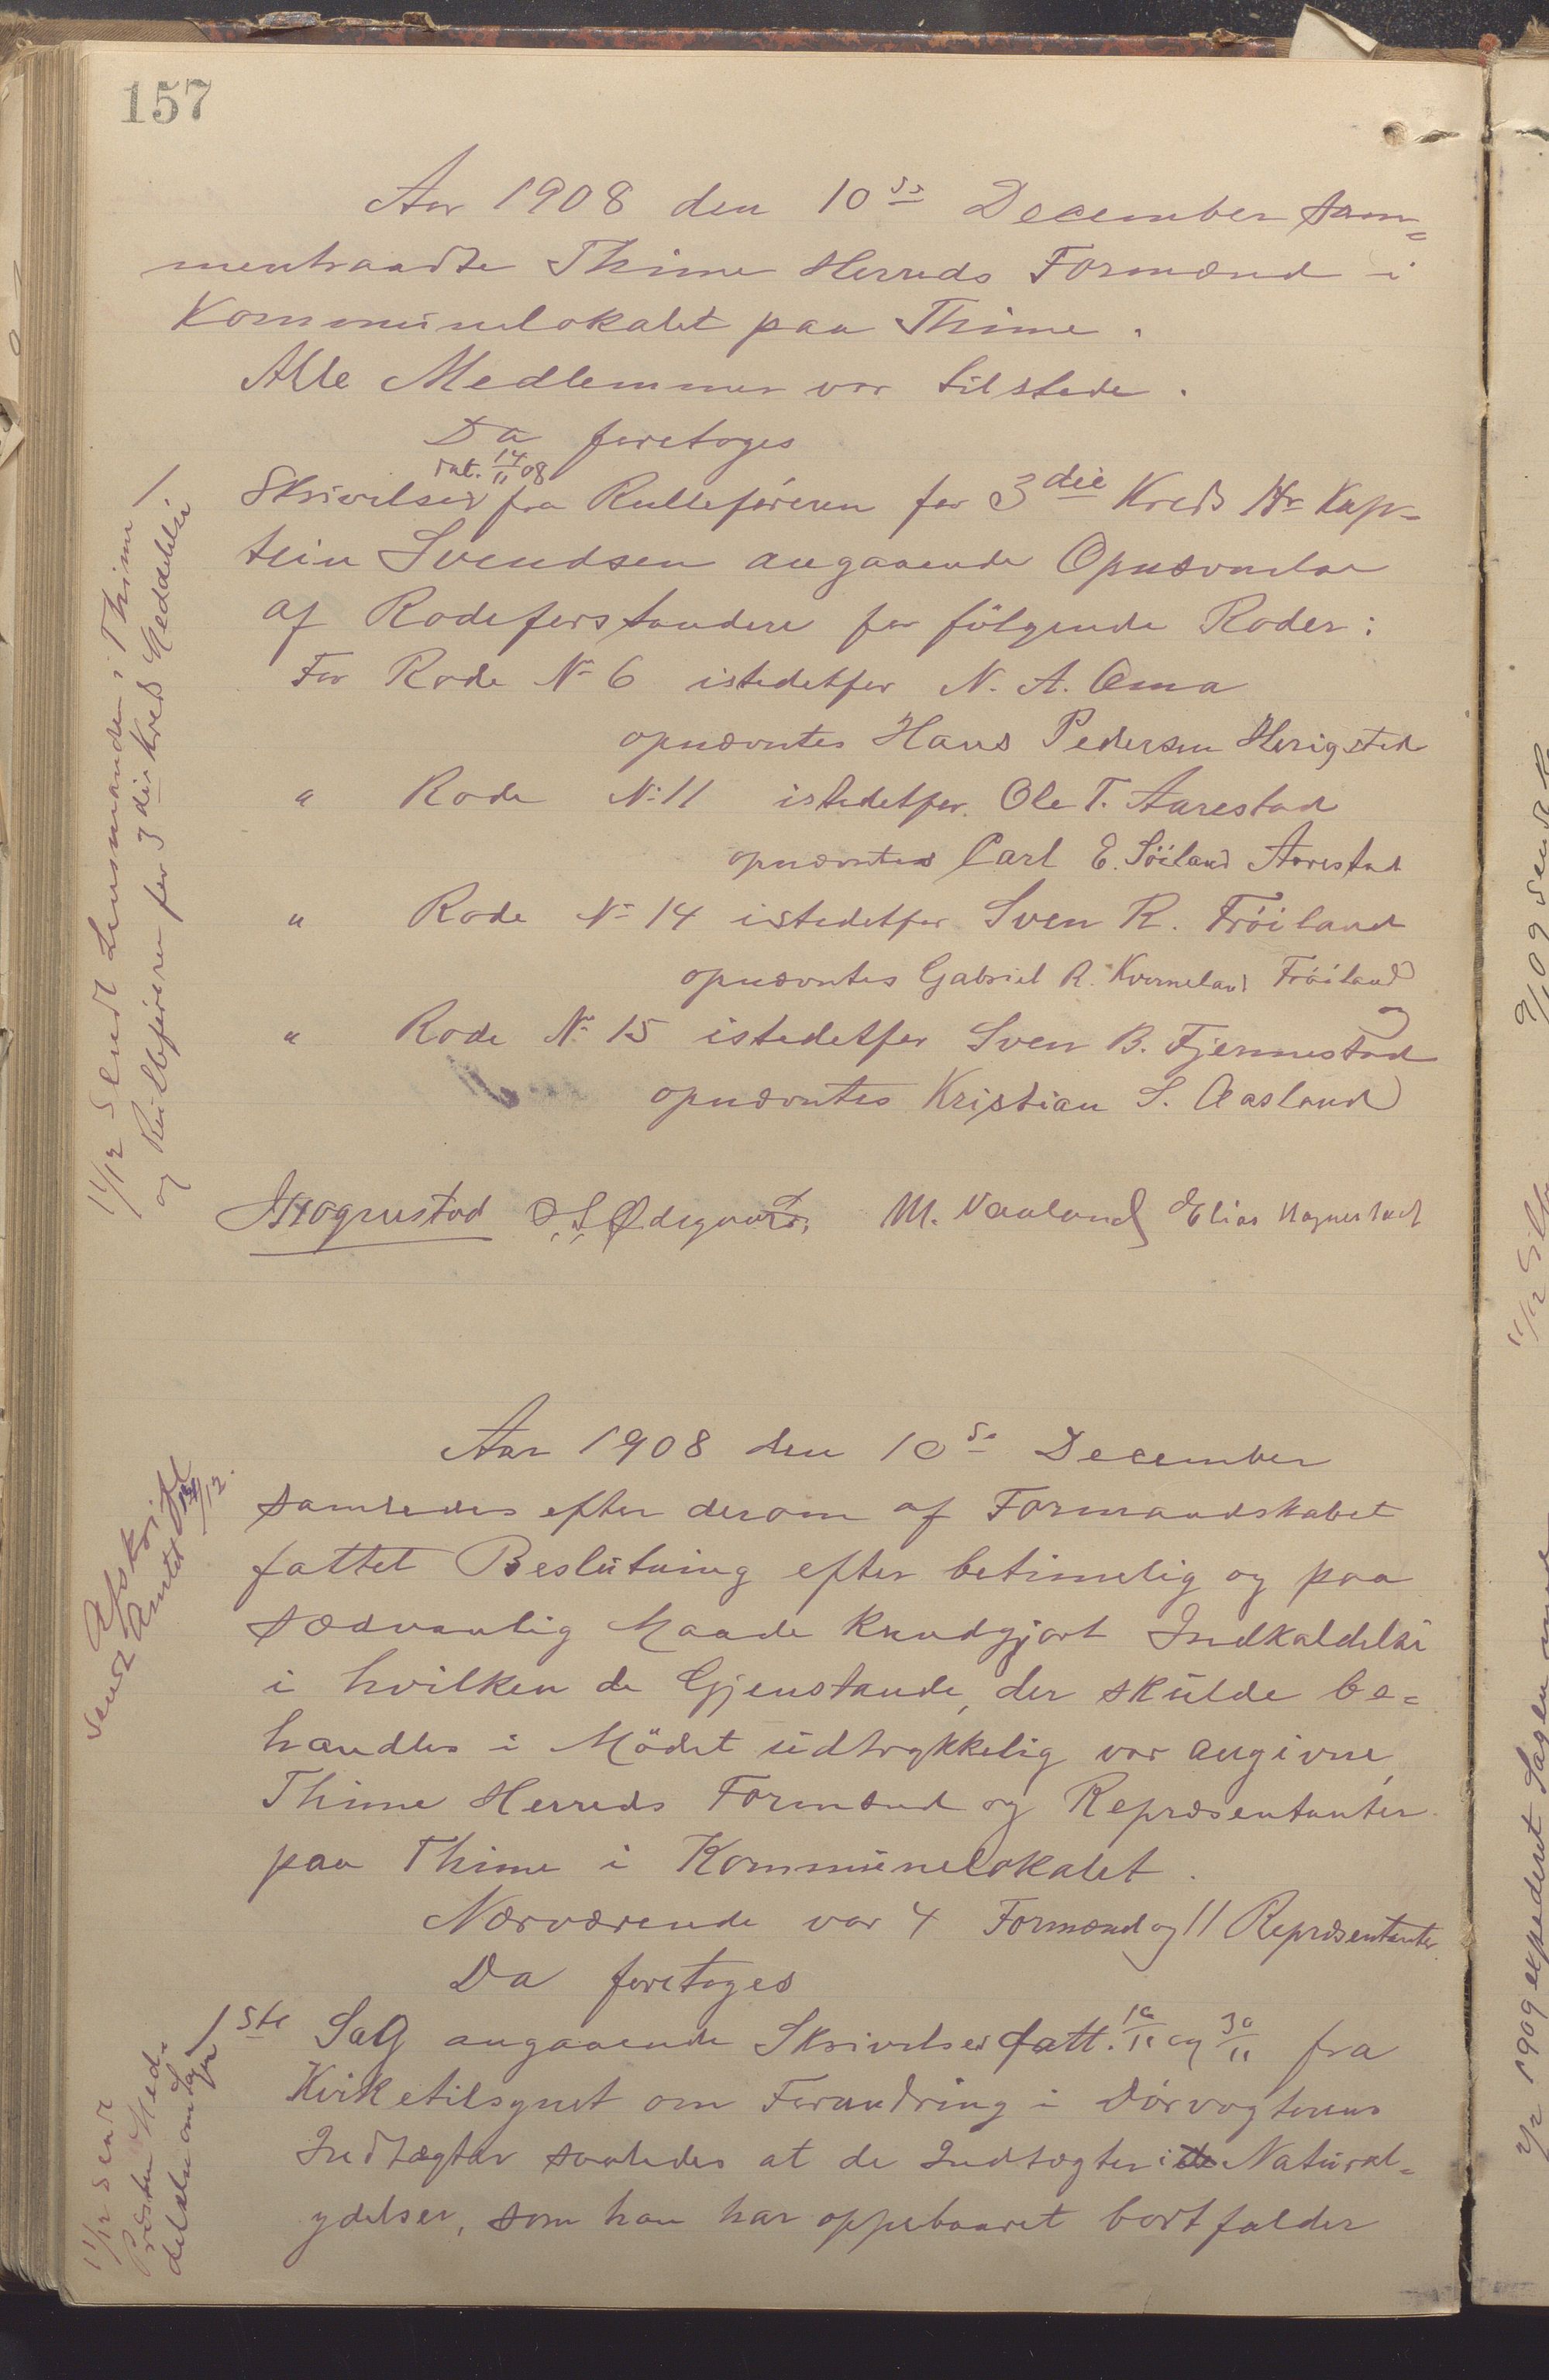 157
Aar 1908 den 10de December sam=
mentraadte Thime Herreds Formænd i
Kommunelokalet paa Thime.
Alle Medlemmer var tilstede.
Da foretoges
dat. 14/11 08
Skrivelse fra Rulleføreren for 3die Kreds Hr Kap-
tein Svendsen angaaende Opnævnelse
af Rodeforstandere for følgende Roder:
For Rode No 6 istedetfor N. A. Oma
opnævntes Hans Pedersen Herigstad
" Rode No 11 istedetfor Ole T. Aarestad
opnævntes Carl E. Söiland Aarestad
" Rode No 14 istedetfor Sven R. Fröiland
opnævntes Gabriel R. Kverneland Fröiland
" Rode No 15 istedetfor Sven B. Fjermestad
opnævntes Kristian S. Aasland
11/12 Sendt Lensmanden i Thime
og Rulleføreren for 3die Kreds Meddelelse
Hognestad O. S. Ødegaard. M. Vaaland Elias Hognestad
Aar 1908 den 10de December
samledes efter derom af Formandskabet
fattet Beslutning efter betimelig og paa
sædvanlig Maade kundgjort Indkaldelse
i hvilken de Gjenstande, der skulde be=
handles i Mödet udtrykkelig var angivne,
Thime Herreds Formænd og Repræsentanter
paa Thime i Kommunelokalet.
Nærværende var 4 Formænd og 11 Repræsentanter.
Da foretoges
Afskrift
sendt Amtet /12.
1ste Sag angaaende Skrivelser datt. 10/11 og 30/11 fra
Kirketilsynet om Forandring i Dörvogterens
Indtægter saaledes at de Indtægter i Natural=
ydelser, som han har oppebaaret bortfalder
11/12 Sendt
Presten Med-
delelse om Sagen
9/1 09 Sendt
11/12
1/2 1909 expederet Sagen